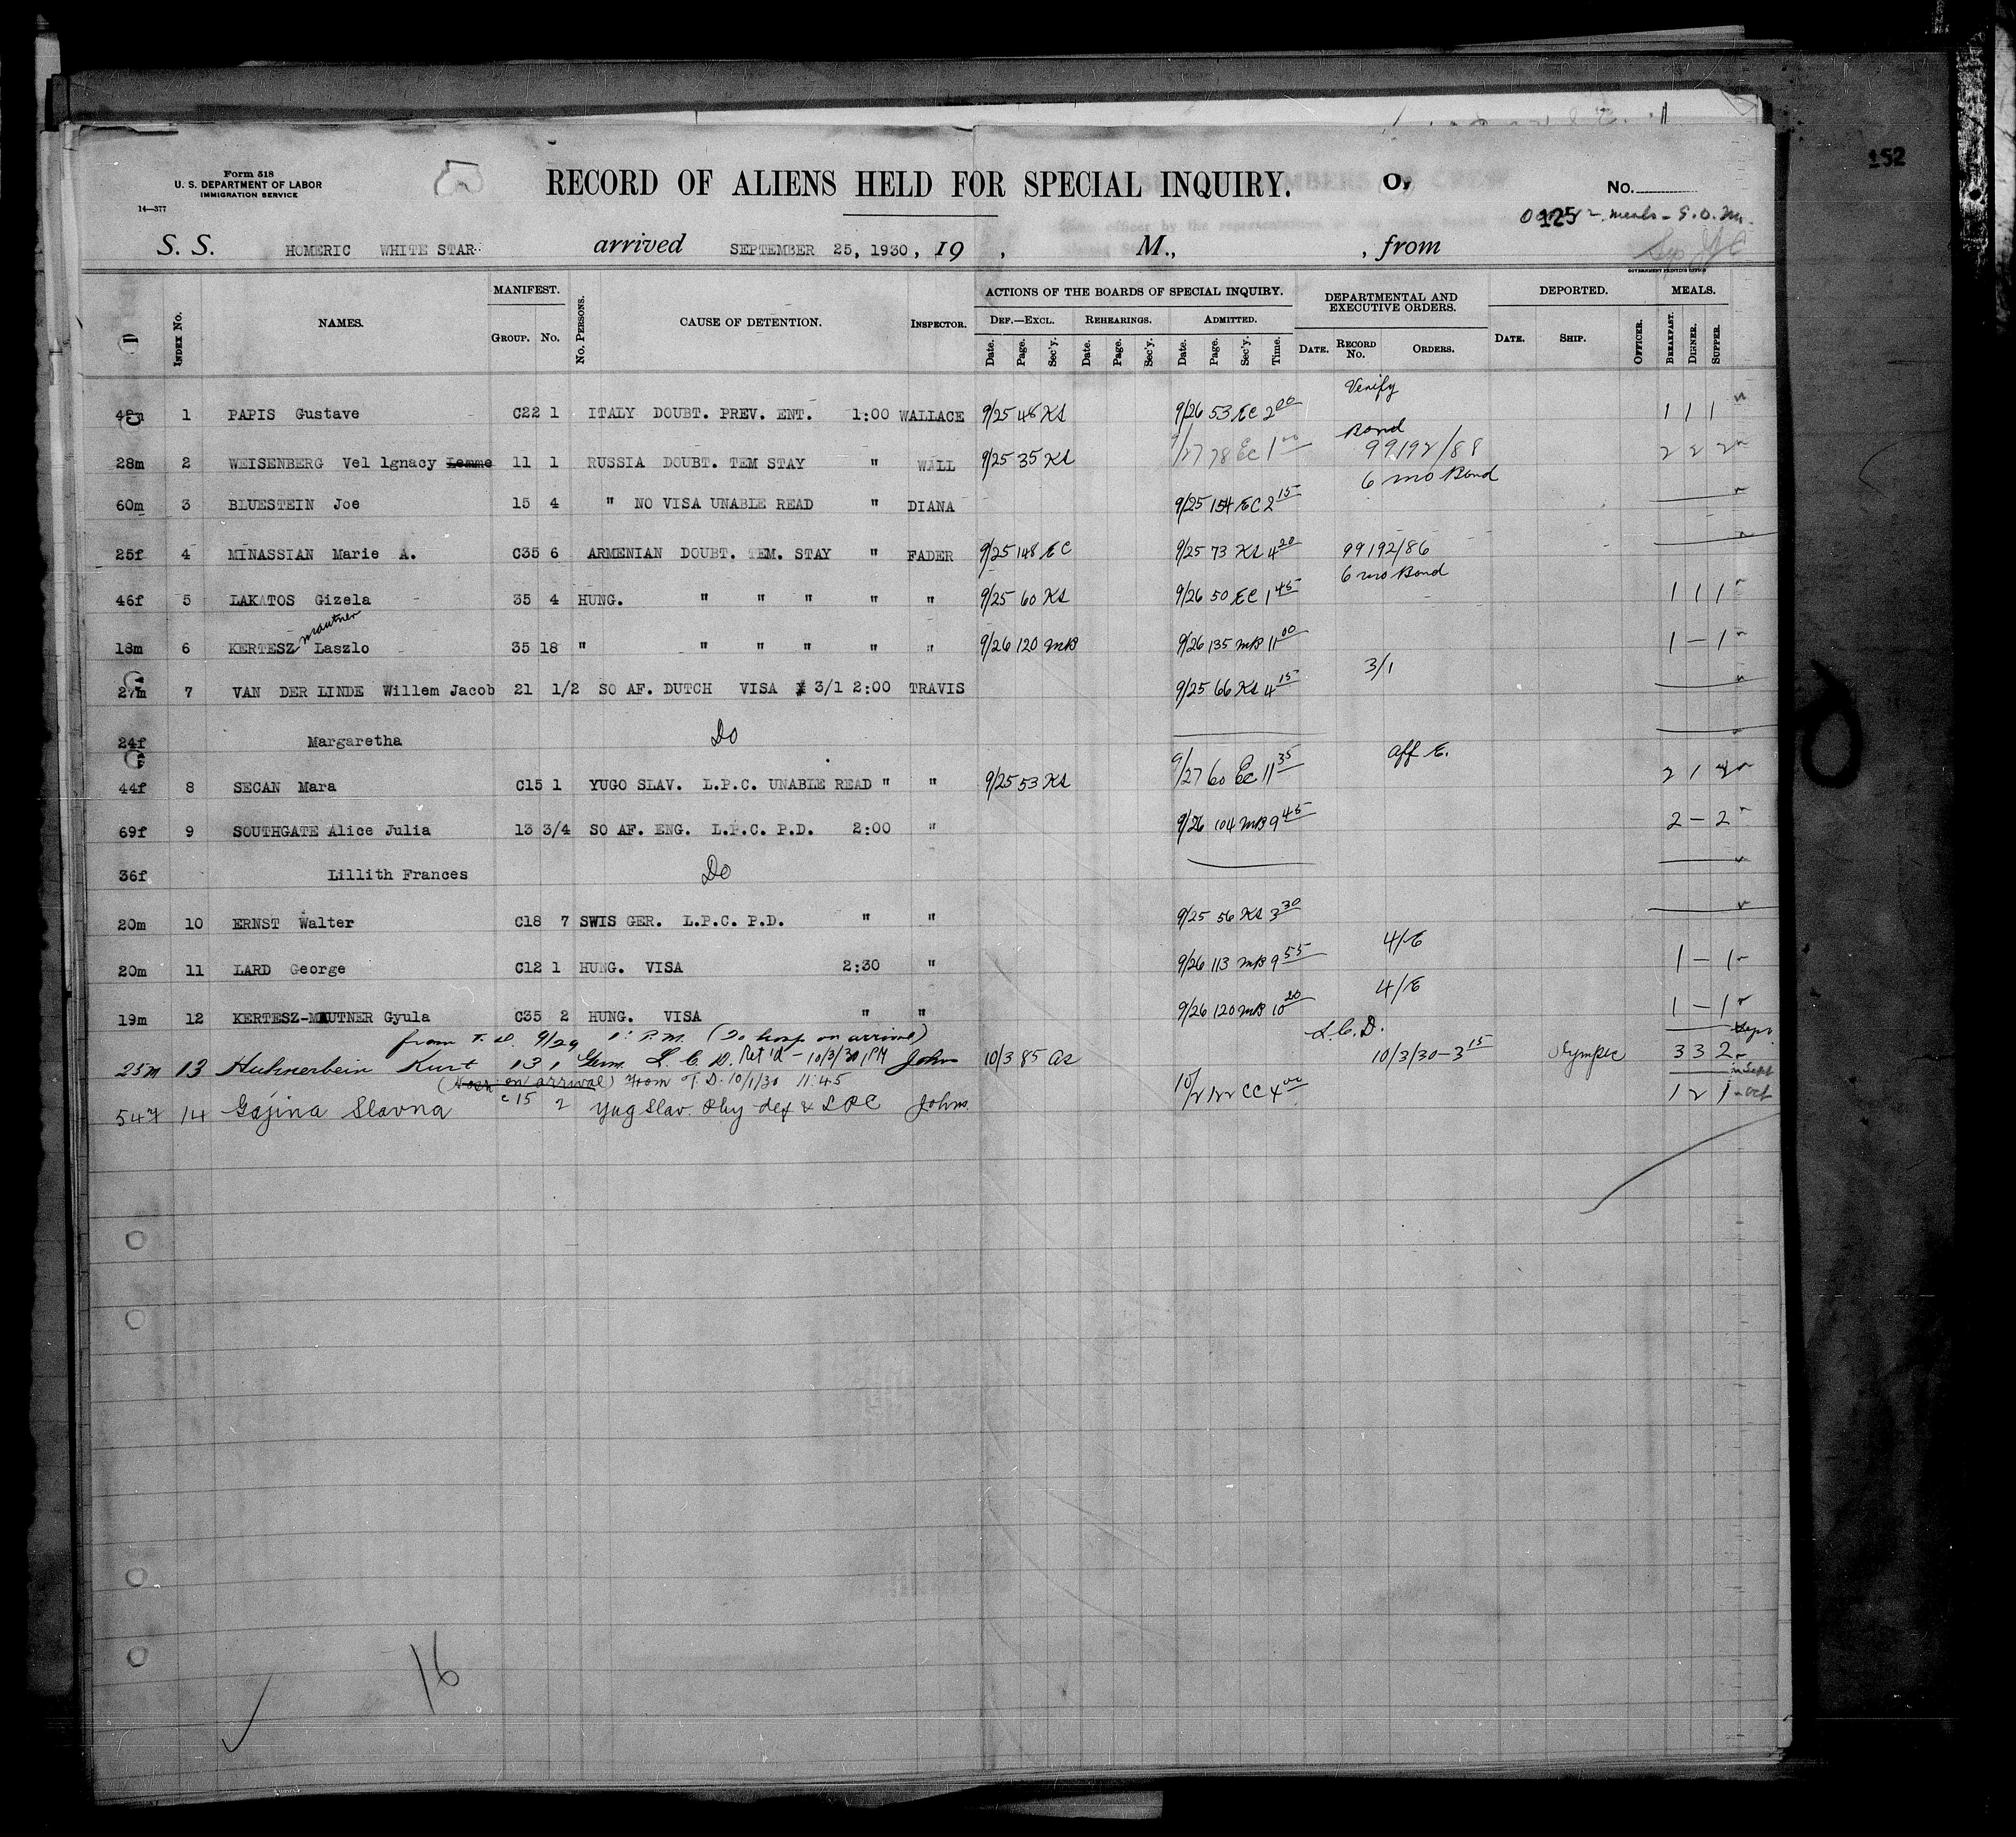 152
Form 518
U. S. DEPARTMENT OF LABOR
IMMIGRATION SERVICE
14—377
RECORD OF ALIENS HELD FOR SPECIAL INQUIRY.
O,
No.
125
meals - S.O.M.
S. S. HOMERIC WHITE STAR arrived SEPTEMBER 25, 1930, 19 , M., , from
GOVERNMENT PRINTING OFFICE
INDEX No. NAMES. MANIFEST. GROUP. No. No. PERSONS. CAUSE OF DETENTION. INSPECTOR. ACTIONS OF THE BOARDS OF SPECIAL INQUIRY. DEPARTMENTAL AND EXECUTIVE ORDERS. DEPORTED. MEALS.
DEF.—EXCL. REHEARINGS. ADMITTED.
Date. Page. Sec'y. Date. Page. Sec'y. Date. Page. Sec'y. Time. DATE. RECORD No. ORDERS. DATE. SHIP. OFFICER. BREAKFAST. DINNER. SUPPER.
Verify
1 PAPIS Gustave C22 1 ITALY DOUBT. PREV. ENT. 1:00 WALLACE 9/25 48 KS 9/26 53 EC 2 00 1 1 1
Bond
28m 2 WEISENBERG Vel lgnacy Lemme 11 1 RUSSIA DOUBT. TEM STAY " WALL 9/25 35 KS 9/27 78 EC 1 00 99192/88 2 2 2
6 mo Bond
60m 3 BLUESTEIN Joe 15 4 " NO VISA UNABLE READ " DIANA 9/25 154 EC 2 15
25f 4 MINASSIAN Marie A. C35 6 ARMENIAN DOUBT. TEM. STAY " FADER 9/25 148 EC 9/25 73 KS 4 20 99192/86
6 mo Bond
46f 5 LAKATOS Gizela 35 4 HUNG. " " " " " 9/25 60 KS 9/26 50 EC 1 45 1 1 1
mautner
18m 6 KERTESZ Laszlo 35 18 " " " " " " 9/26 120 MB 9/26 135 MB 11 00 1 — 1
3/1
27m 7 VAN DER LINDE Willem Jacob 21 1/2 SO AF. DUTCH VISA 3/1 2:00 TRAVIS 9/25 66 KS 4 15
24f Margaretha Do
aff E.
44f 8 SECAN Mara C15 1 YUGO SLAV. L.P.C. UNABLE READ " " 9/25 53 KS 9/27 60 EC 11 35 2 1 2
69f 9 SOUTHGATE Alice Julia 13 3/4 SO AF. ENG. L.P.C. P.D. 2:00 " 9/26 104 MB 9 45 2 — 2
36f Lillith Frances Do
20m 10 ERNST Walter C18 7 SWIS GER. L.P.C. P.D. " " 9/25 56 KS 3 30
4/E
20m 11 LARD George C12 1 HUNG. VISA 2:30 " 9/26 113 MB 9 55 1 — 1
4/E
19m 12 KERTESZ-MAUTNER Gyula C35 2 HUNG. VISA " " 9/26 120 MB 10 20 1 — 1
from T. D. 9/29 1: P.M. (To hosp on arrival) L.C.D. Sept
25m 13 Huhnerbein Kurt 13 1 Germ. L. C. D. Ret'd - 10/3/30 1 PM John 10/3 85 AS 10/3/30-3 15 Olympic 3 3 2
(Hosp on arrival) From T.D. 10/1/30 11:45
54f 14 Gajina Slavna C15 2 Yug Slav. Phy def & LPC Johns 10/2 122 CC 4 00 1 2 1 Oct
16